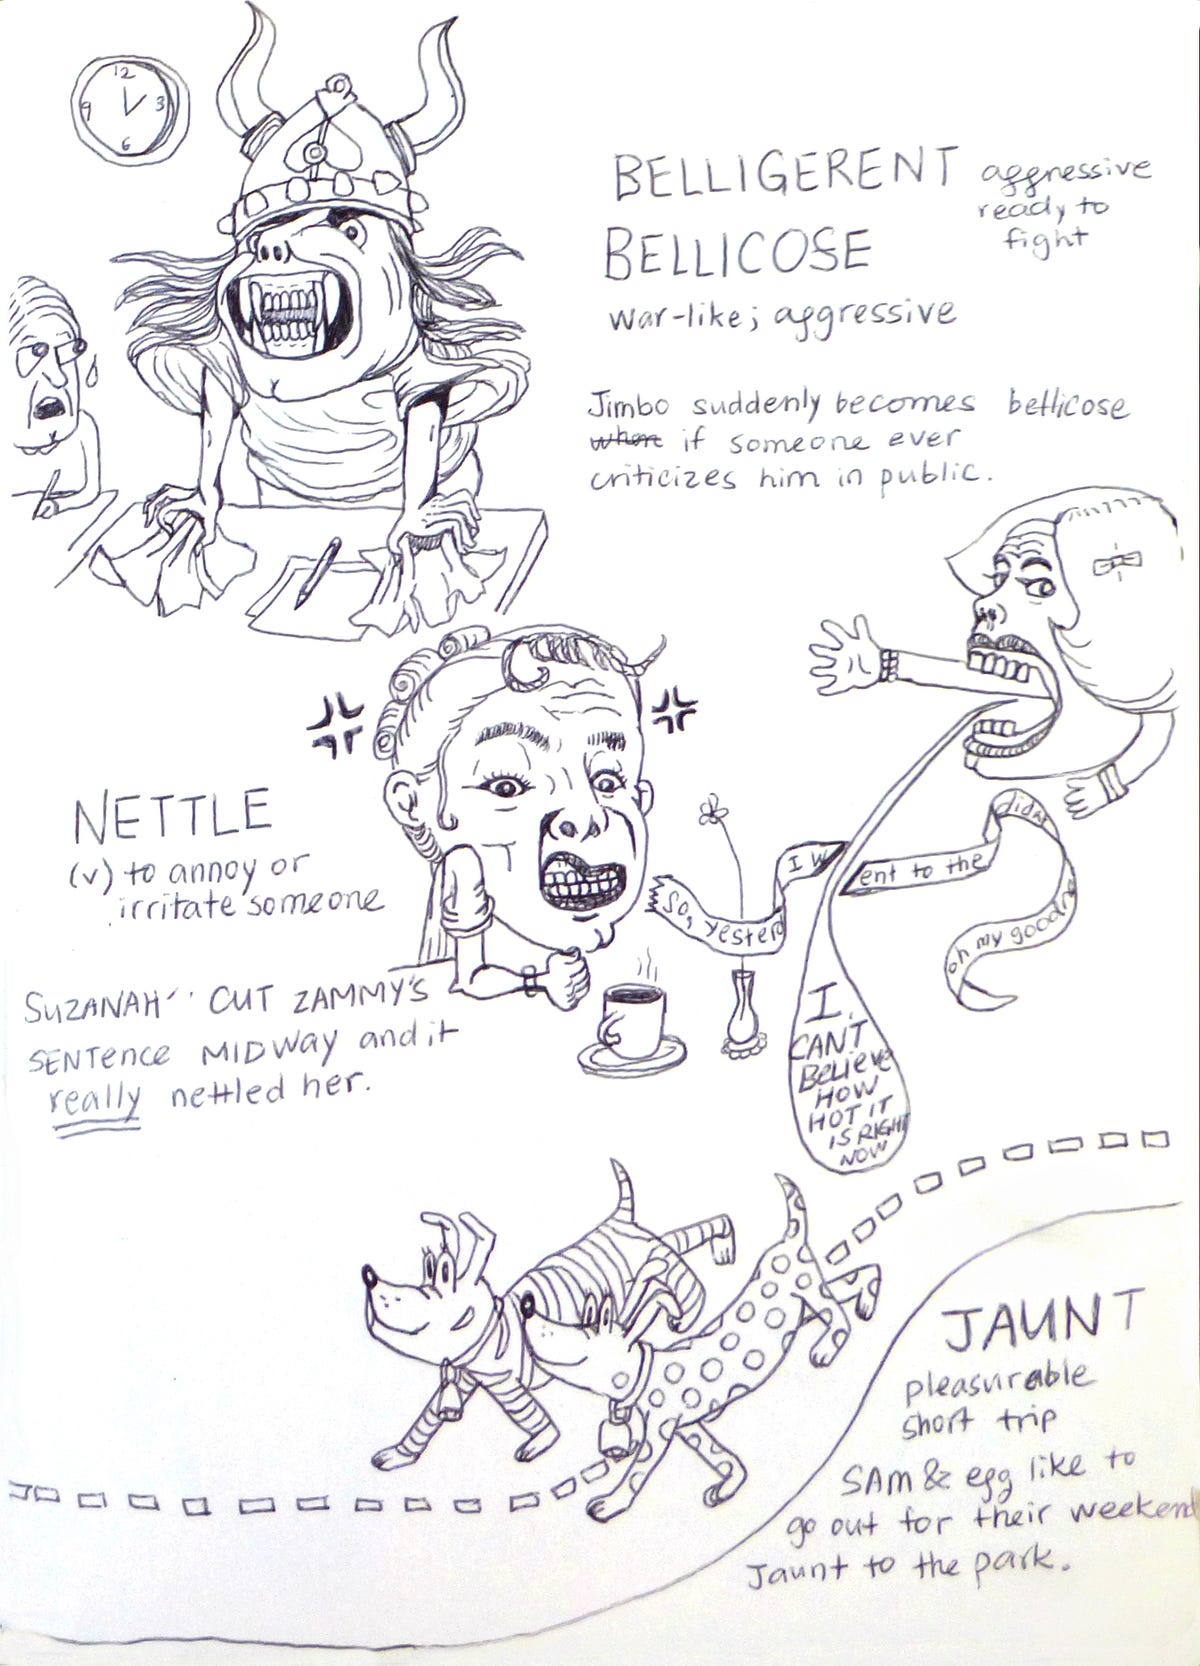 12
3
6
9
BELLIGERENT
aggressive
ready to
fight
BELLICOSE
war-like; aggressive
Jimbo suddenly becomes bellicose
when if someone ever
criticizes him in public.
NETTLE
(v) to annoy or
irritate someone
SUZANAH CUT ZAMMY'S
SENTENCE MIDWAY and it
really nettled her.
So, yesterd
I w
ent to the
didn
oh my goodne
I
CAN'T
BELIEVE
HOW
HOT IT
IS RIGHT
NOW
JAUNT
pleasurable
short trip
SAM & egg like to
go out for their weekend
Jaunt to the park.